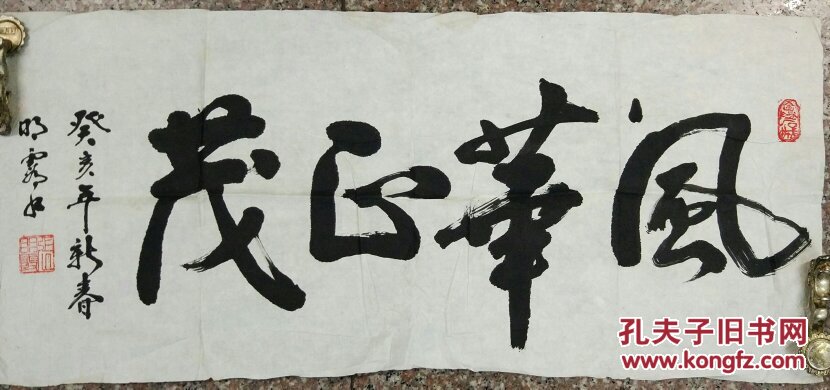 風華正茂
癸亥年新春
明霞书
孔夫子旧书网
www.kongfz.com